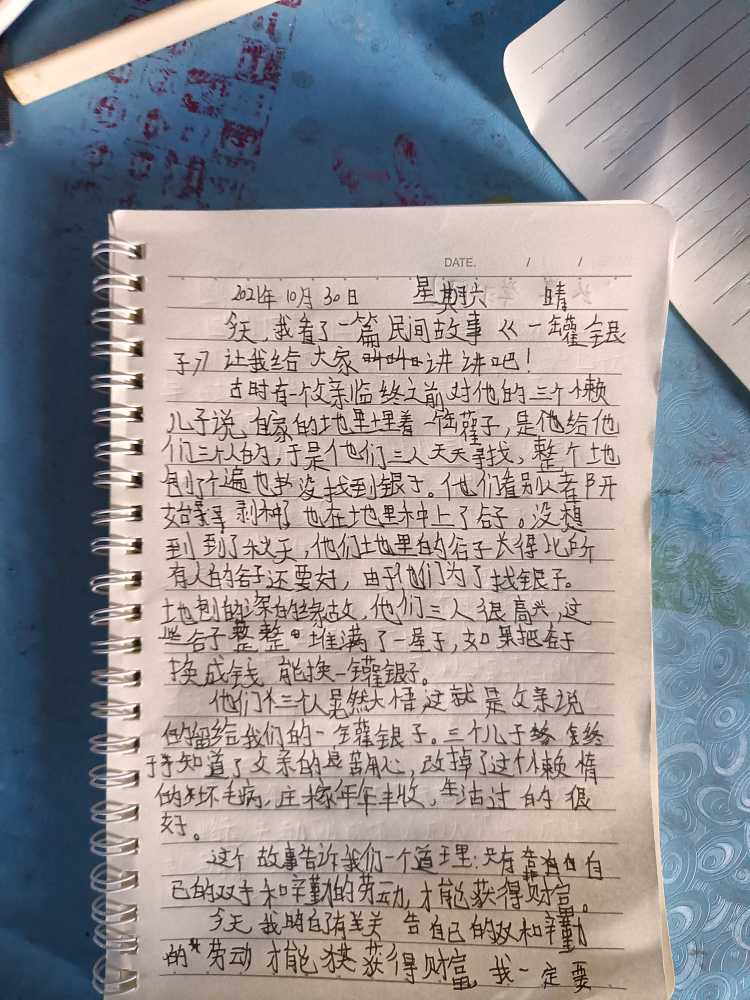 DATE. / /
2021年10月30日 星期六 晴
今天,我看了一篇民间故事《一罐银
子》让我给大家讲讲吧!
古时有个父亲临终之前对他的三个懒
儿子说 自家的地里埋着一罐子,是他给他
们三个人的,于是他们三人天天寻找,整个土地
刨了个遍也没找到银子。他们看别人都开
始种了也在地里种上了谷子。没想
到到了秋天,他们地里的谷子长得比所
有人的谷子还要好,由于他们为了找银子。
地刨的深的缘故,他们三人很高兴,这
些谷子整整堆满了一屋子,如果把谷子
换成钱 能换一罐银子。
他们三个人晃然大悟这就是父亲说
的留给我们的一罐银子。三个儿子终
于知道了父亲的良苦用心,改掉了这个懒惰
的坏毛病,庄稼年年丰收,生活过的很
好。
这个故事告诉我们一个道理:只有靠自
己的双手和辛勤的劳动,才能获得财富。
今天我明白 告自己的双和辛勤
的劳动才能获得财富,我一定要